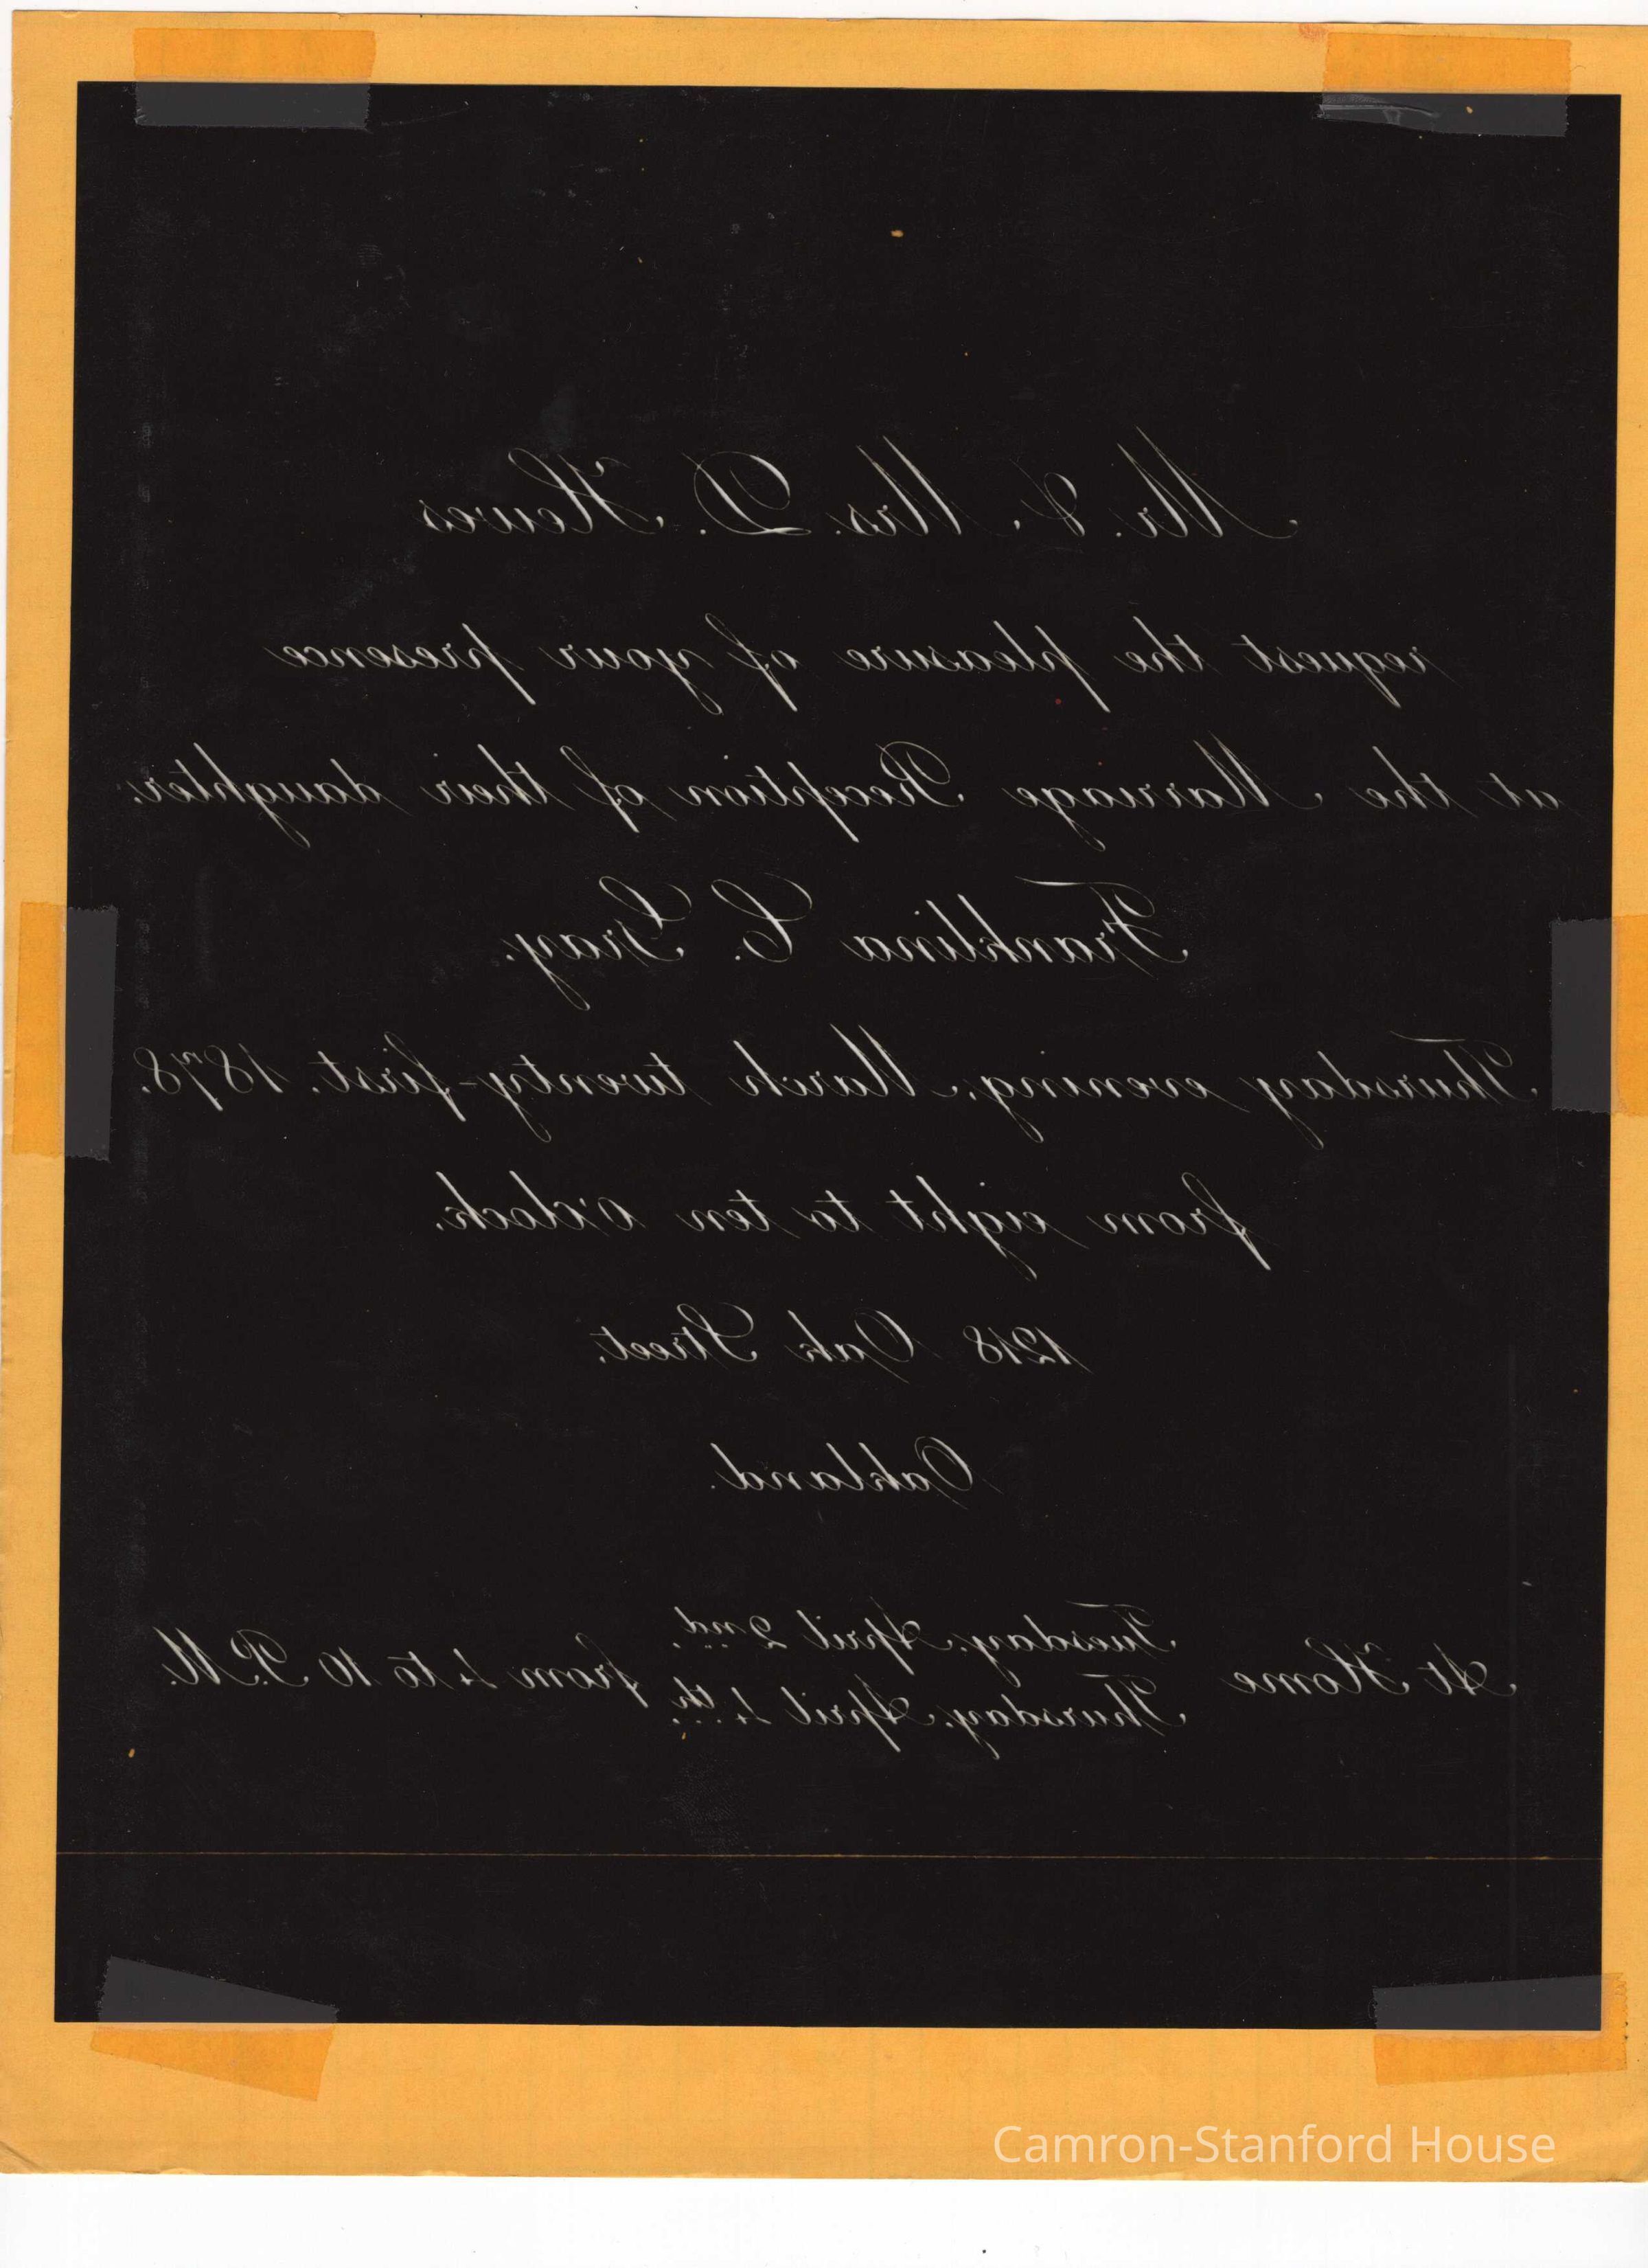 Mr. & Mrs. D. Hewes
request the pleasure of your presence
at the Marriage Reception of their daughter.
Franklina C. Gray.
Thursday evening, March twenty-first. 1878.
from eight to ten o'clock.
1218 Oak Street.
Oakland.
Tuesday, April 2nd.
At Home from 4 to 10 P.M.
Thursday, April 4th.
Camron-Stanford House